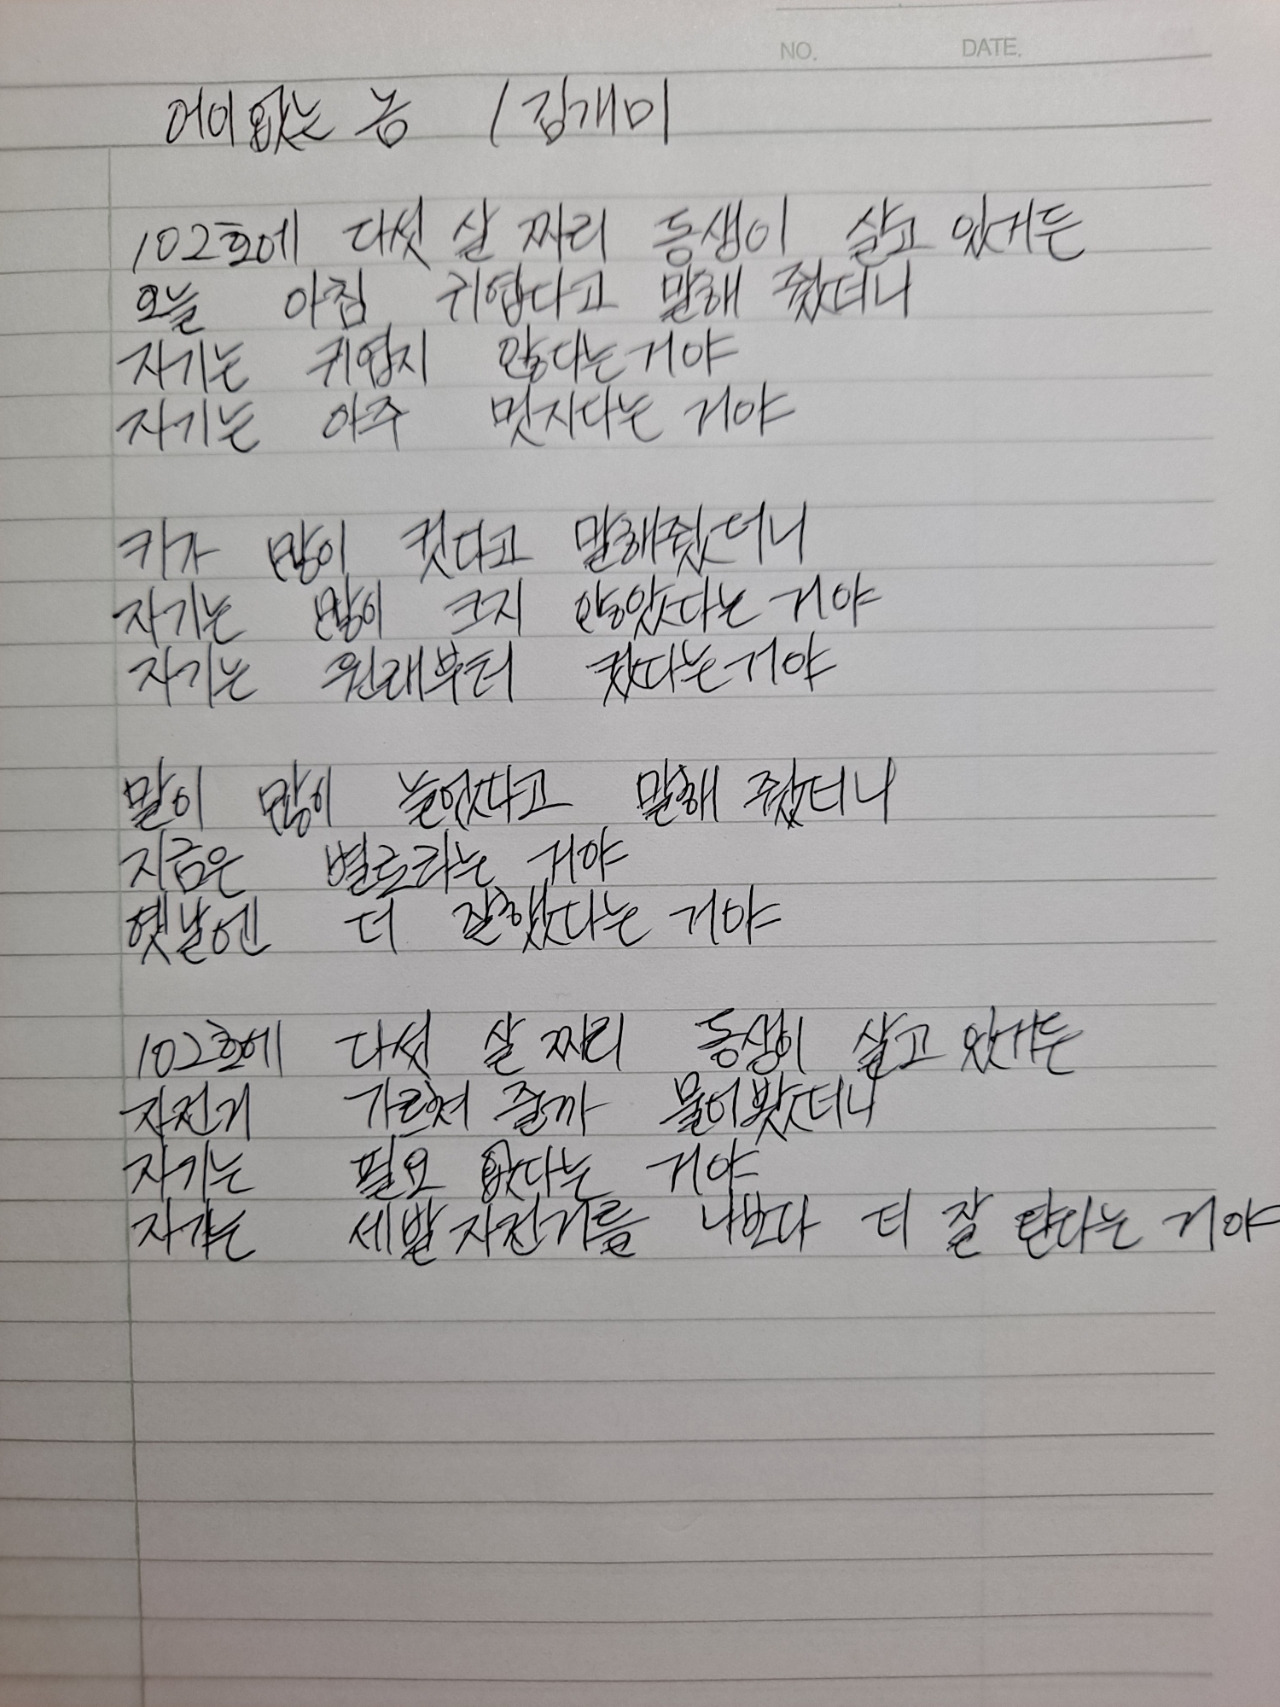 NO. DATE.
어이없는 놈 / 김개미
102호에 다섯 살 짜리 동생이 살고 있거든
오늘 아침 귀엽다고 말해 줬더니
자기는 귀엽지 않다는 거야
자기는 아주 멋지다는 거야
키가 많이 컸다고 말해줬더니
자기는 많이 크지 않았다는 거야
자기는 원래부터 컸다는 거야
말이 많이 늘었다고 말해 줬더니
지금은 별로라는 거야
옛날엔 더 잘했다는 거야
102호에 다섯 살 짜리 동생이 살고 있거든
자전거 가르쳐 줄까 물어봤더니
자기는 필요 없다는 거야
자기는 세발 자전거를 나보다 더 잘 탄다는 거야